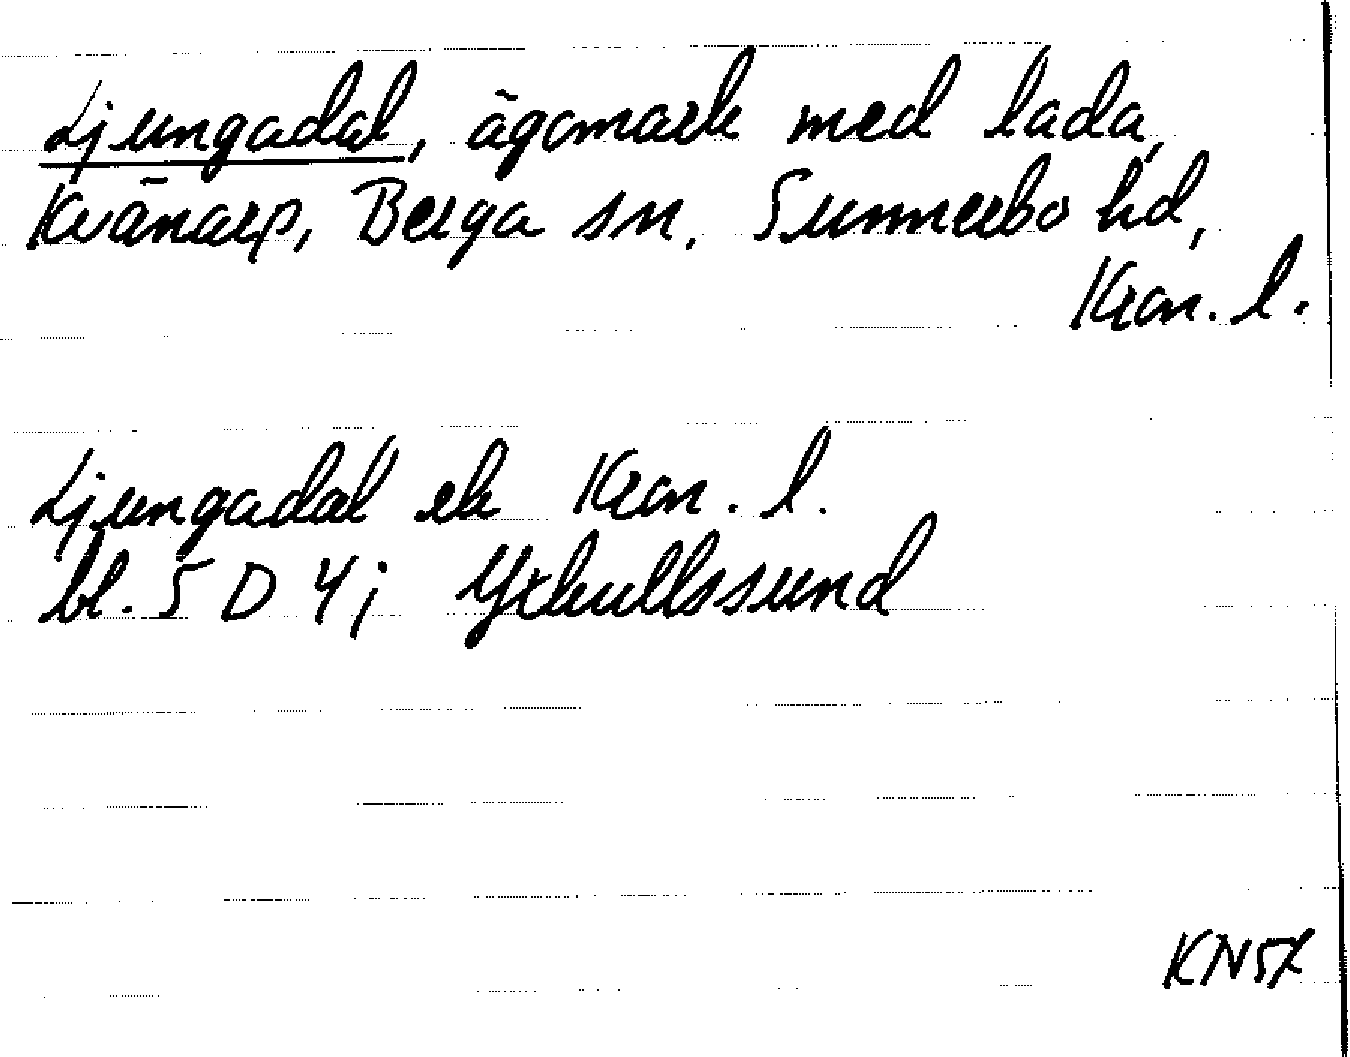 Ljungadal, ägomark med lada,
Kvänarp, Berga sn, Sunnerbo hd,
Kron. l.
Ljungadal ek Kron. l.
bl. 5 D 4j Yxkullssund
KN57